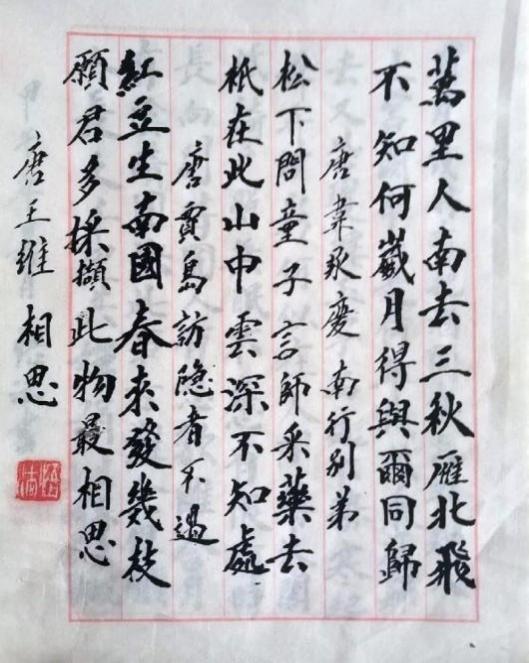 萬里人南去三秋雁北飛
不知何歲月得與爾同歸
唐韋承慶南行別弟
松下問童子言師采藥去
祇在此山中雲深不知處
唐賈島訪隐者不遇
紅豆生南國春來發幾枝
願君多採擷此物最相思
唐王維 相思